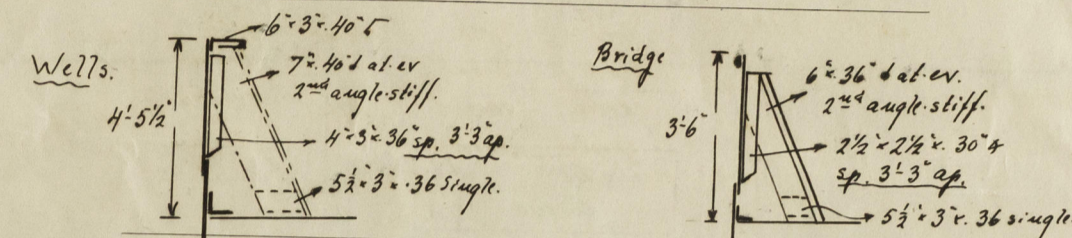 Wells.
4'-5½"
6" × 3" × .40"
7" × .40" at ev
2nd angle stiff.
4" × 3" × .36" sp. 3'-3" ap.
5½" × 3" × .36 Single.
Bridge
3'-6"
6" × .36" at ev.
2nd angle stiff.
2½" × 2½" × .30"
sp. 3'-3" ap.
5½" × 3" × .36 single